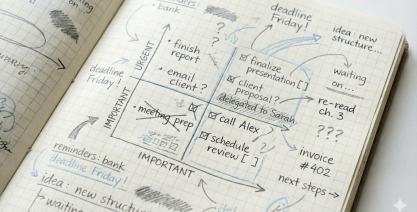 reminders:
bank
deadline
Friday!
idea: new
structure...
waiting
on...
re-read
ch. 3
???
invoice
#402
next steps →
URGENT
IMPORTANT
• finish
report
• email
client?
deadline
Friday!
?
?
☑ finalize
presentation [ ]
☑ client
proposal?
delegated to Sarah
• meeting prep
☑ call Alex
☑ schedule
review [ ]
IMPORTANT
reminders: bank
deadline Friday!
idea: new structure
waiting